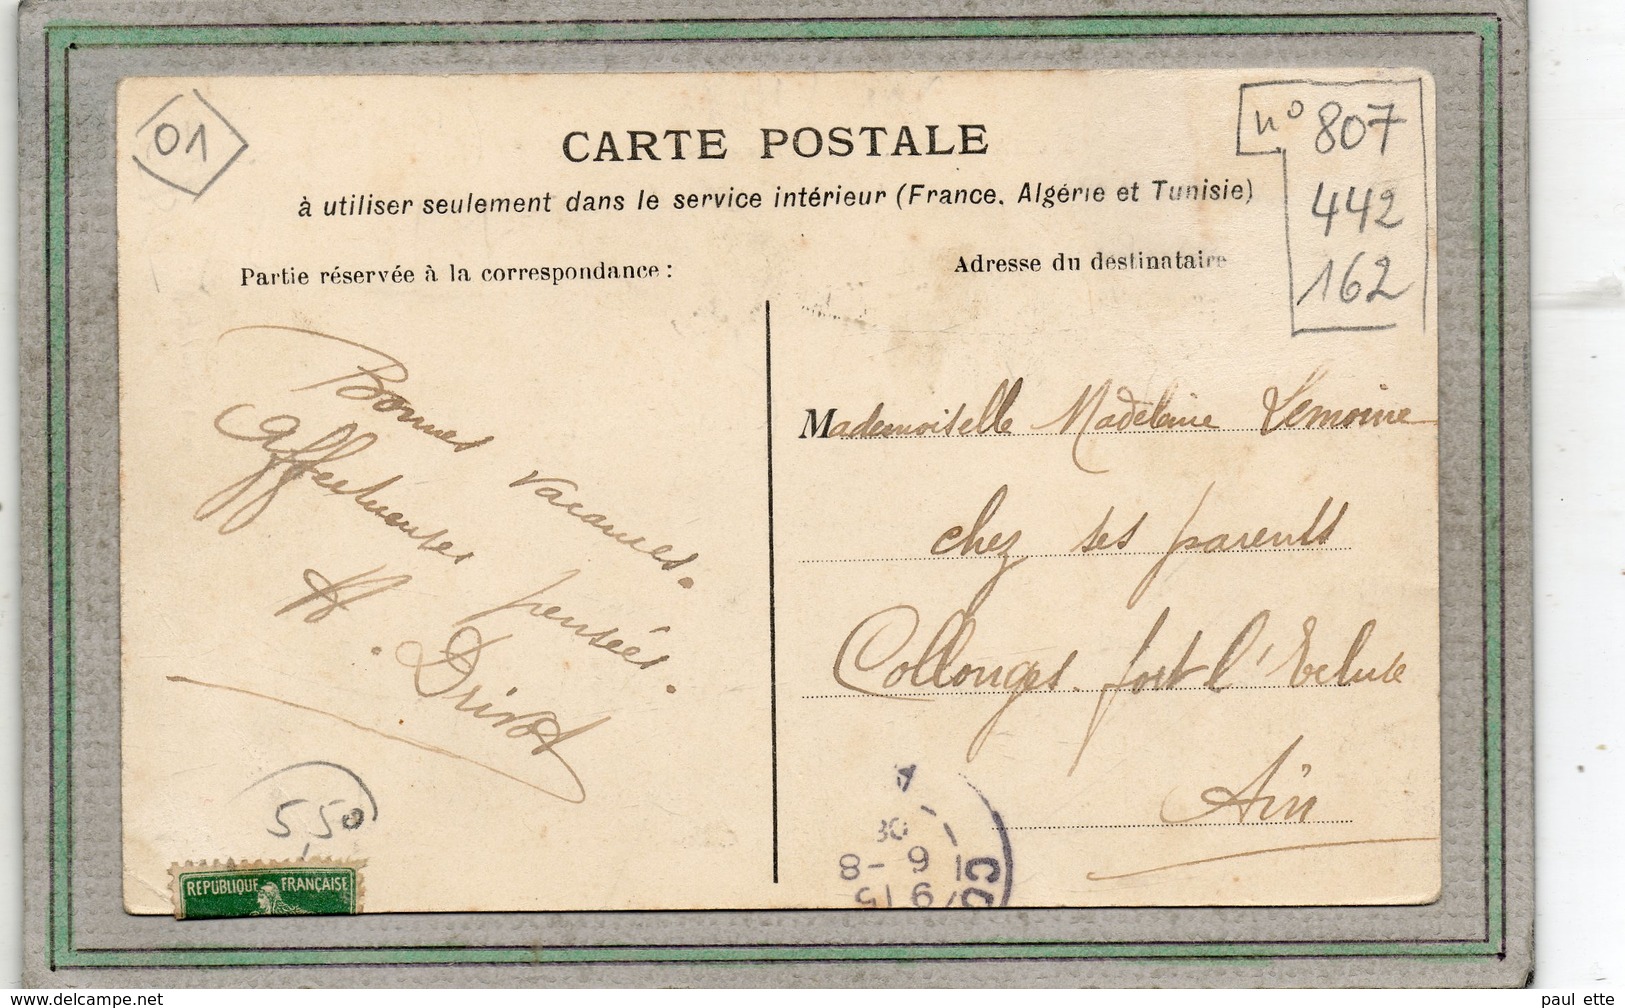 01
n° 807
442
162
CARTE POSTALE
à utiliser seulement dans le service intérieur (France, Algérie et Tunisie)
Partie réservée à la correspondance :
Adresse du destinataire
Bonnes vacances.
Affectueuses pensées.
H. Drivot
Mademoiselle Madeleine Lemoine
chez ses parents
Collonges. fort l'Ecluse
Ain
550
REPUBLIQUE FRANÇAISE
www.delcampe.net
paul ette